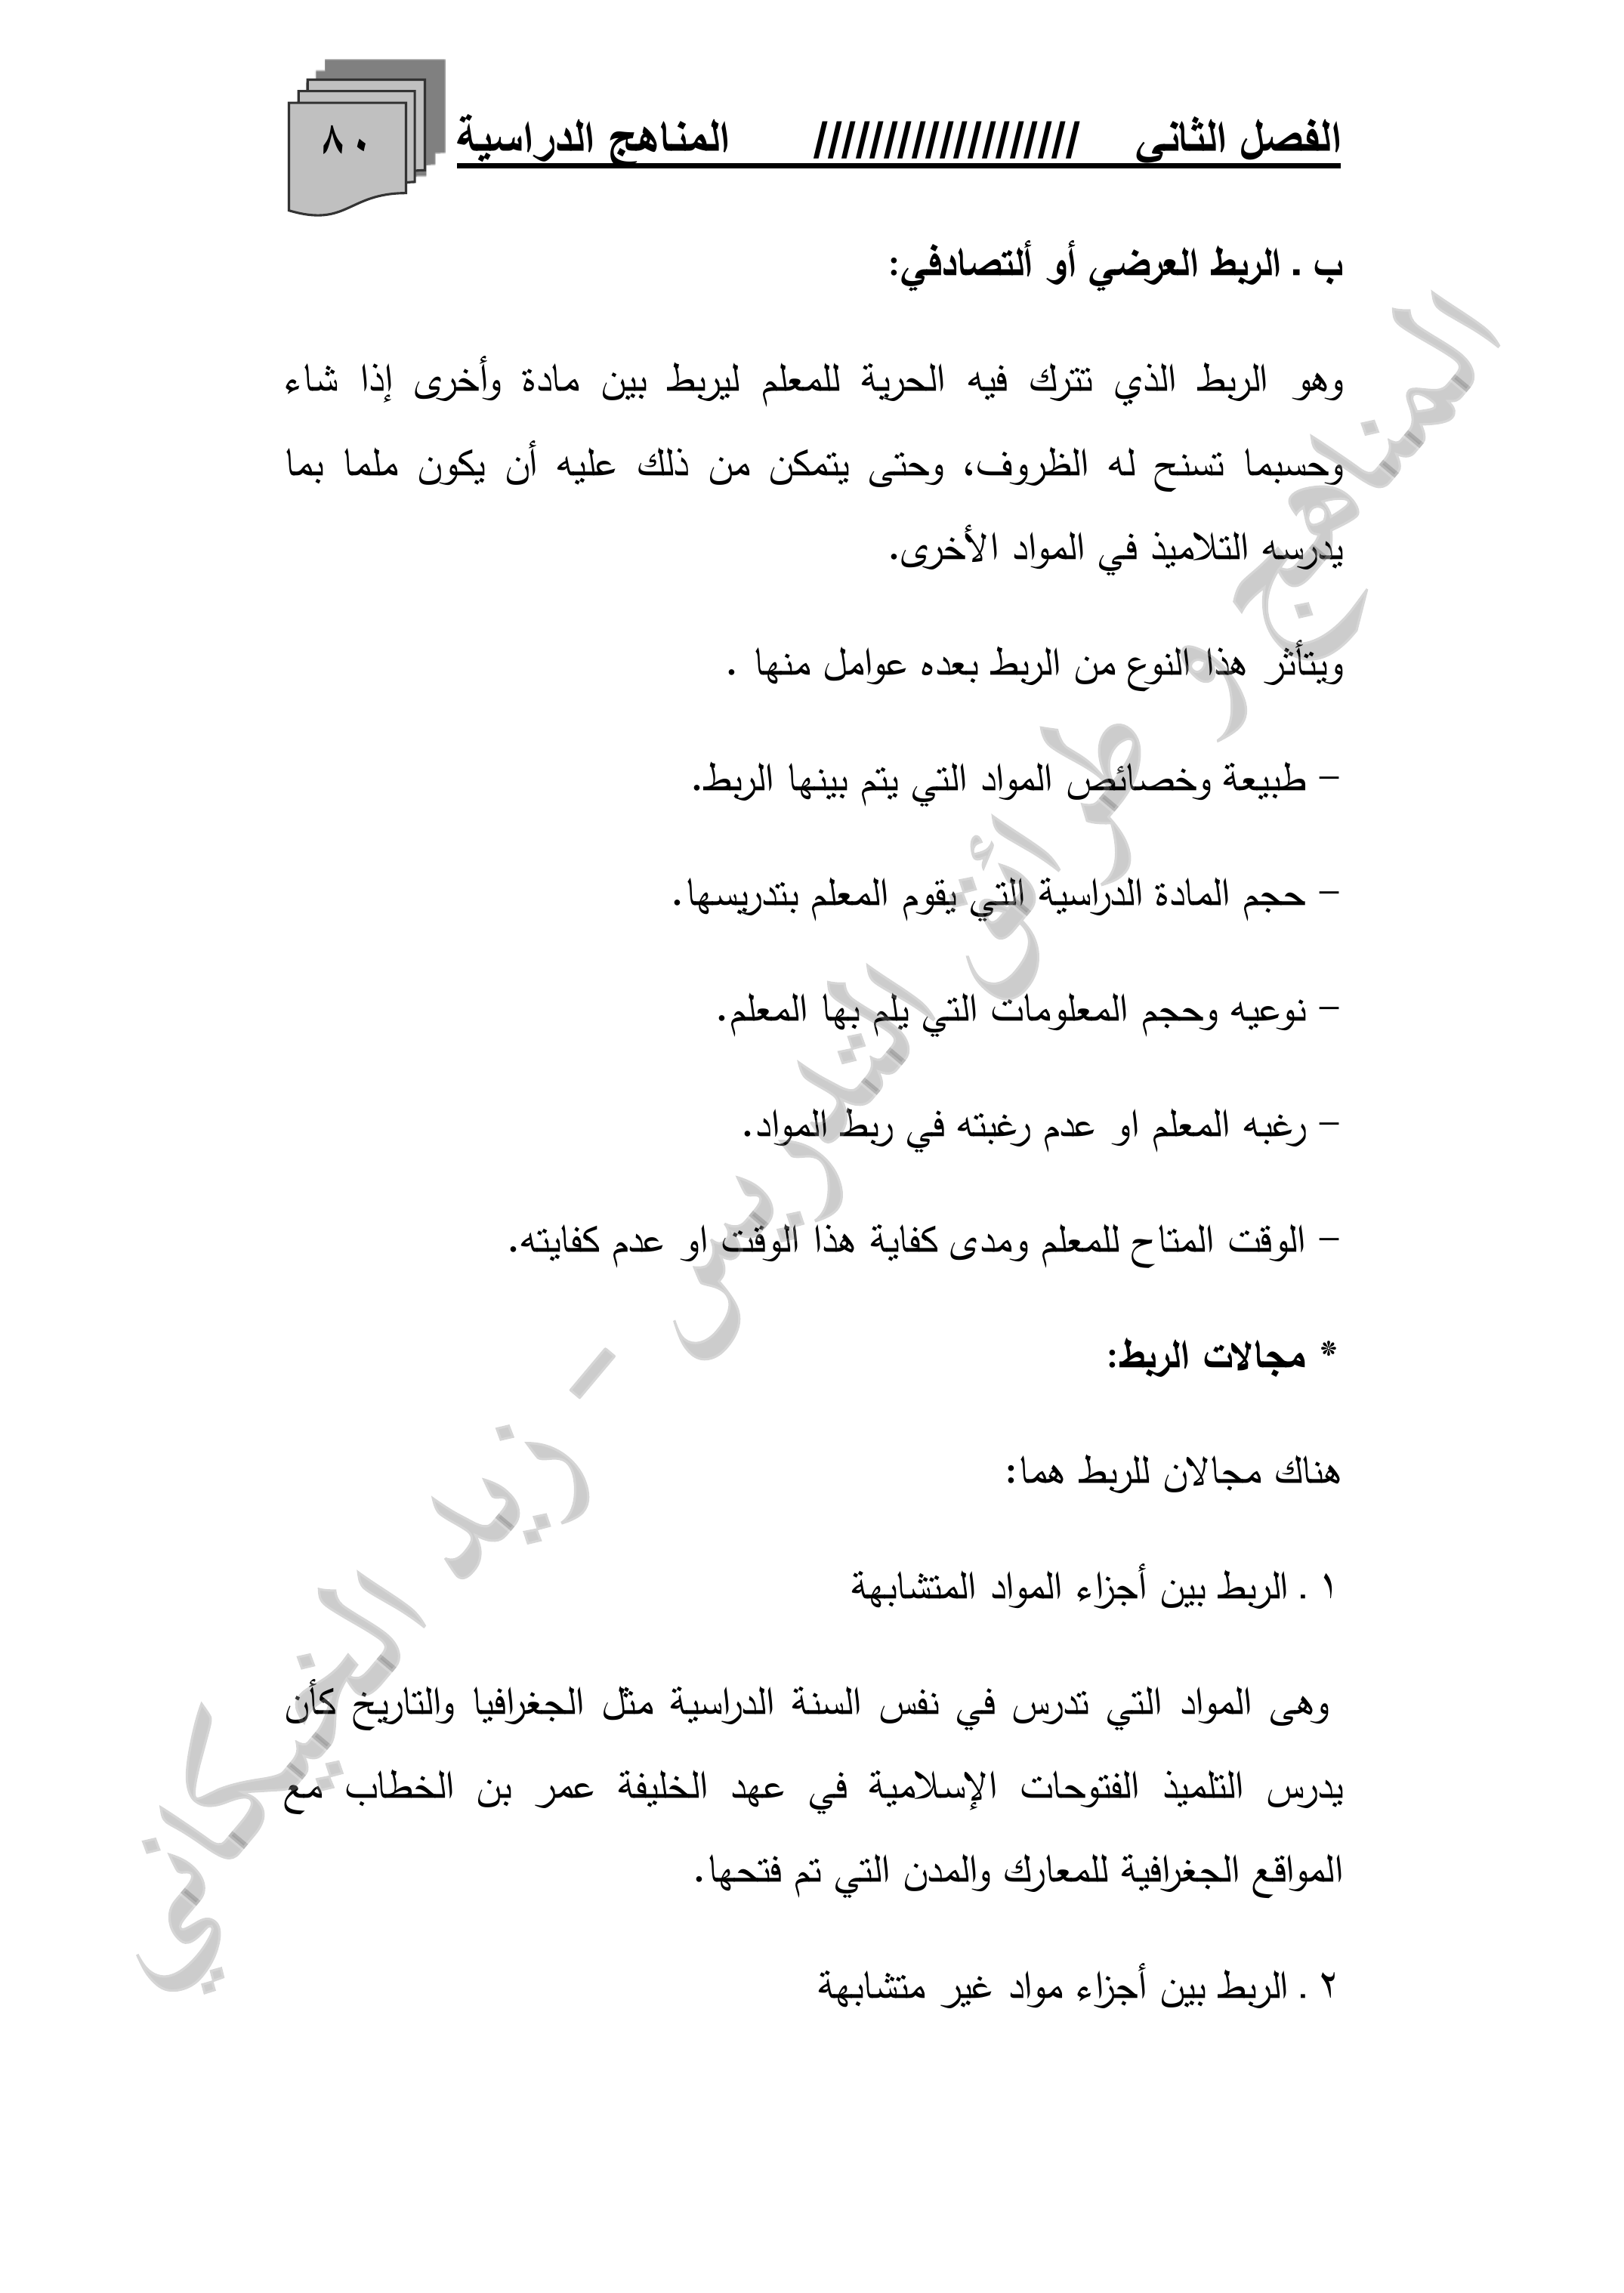 الفصل الثاني /////////////////// المناهج الدراسية
٨٠
ب ـ الربط العرضي أو ألتصادفي:
وهو الربط الذي تترك فيه الحرية للمعلم ليربط بين مادة وأخرى إذا شاء
وحسبما تسنح له الظروف، وحتى يتمكن من ذلك عليه أن يكون ملما بما
يدرسه التلاميذ في المواد الأخرى.
ويتأثر هذا النوع من الربط بعده عوامل منها .
– طبيعة وخصائص المواد التي يتم بينها الربط.
– حجم المادة الدراسية التي يقوم المعلم بتدريسها.
– نوعيه وحجم المعلومات التي يلم بها المعلم.
– رغبه المعلم او عدم رغبته في ربط المواد.
– الوقت المتاح للمعلم ومدى كفاية هذا الوقت او عدم كفايته.
* مجالات الربط:
هناك مجالان للربط هما:
١ . الربط بين أجزاء المواد المتشابهة
وهى المواد التي تدرس في نفس السنة الدراسية مثل الجغرافيا والتاريخ كأن
يدرس التلميذ الفتوحات الإسلامية في عهد الخليفة عمر بن الخطاب مع
المواقع الجغرافية للمعارك والمدن التي تم فتحها.
٢ . الربط بين أجزاء مواد غير متشابهة
المناهج و طرائق التدريس - زيد الخيكاني